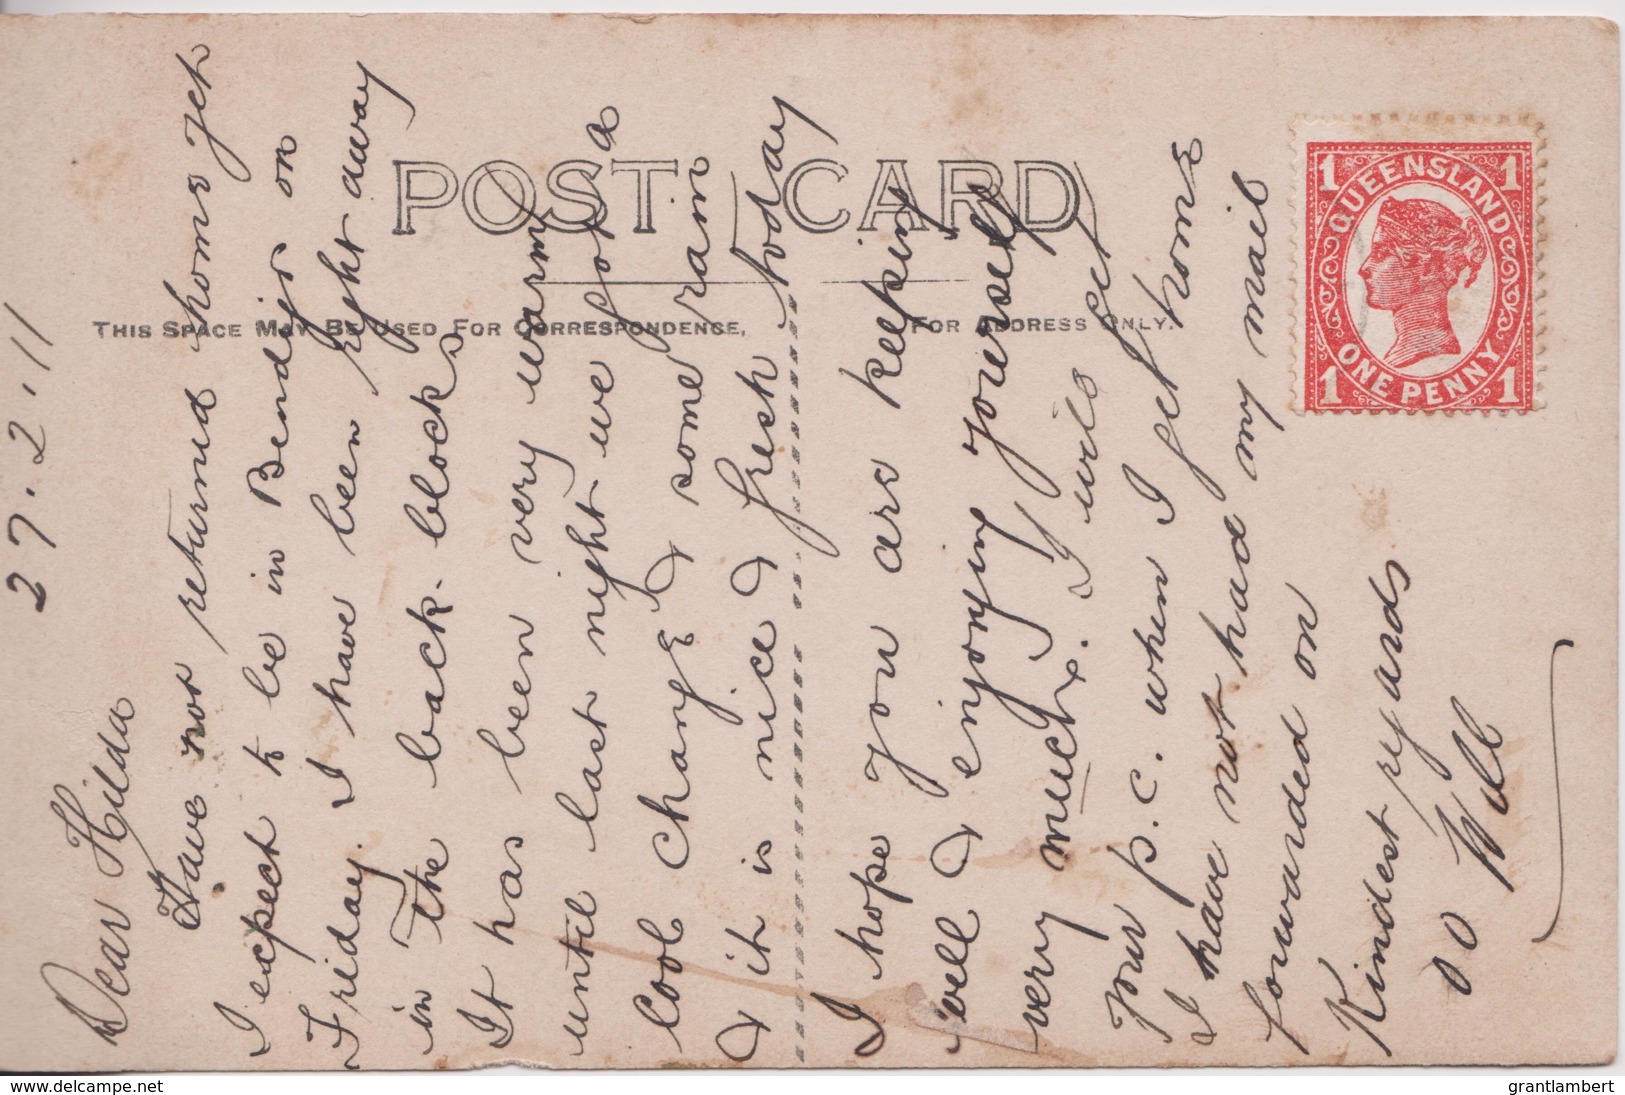 27.2.11
Dear Hilda
Have not returned home yet
I expect to be in Bendigo on
Friday. I have been right away
in the back-blocks
It has been very warm
until last night we got a
cool change & some rain
& it is nice & fresh today
I hope you are keeping
well & enjoying yourself
very much. I will get
your p.c. when I get home
I have not had my mail
forwarded on
Kindest regards
Will
POST CARD
THIS SPACE MAY BE USED FOR CORRESPONDENCE,
FOR ADDRESS ONLY.
1 1
QUEENSLAND
ONE PENNY
1 1
www.delcampe.net
grantlambert